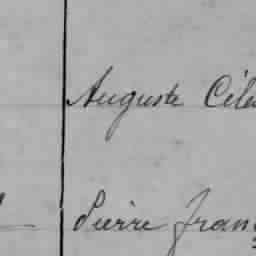 Auguste Céle
Pierre Franç